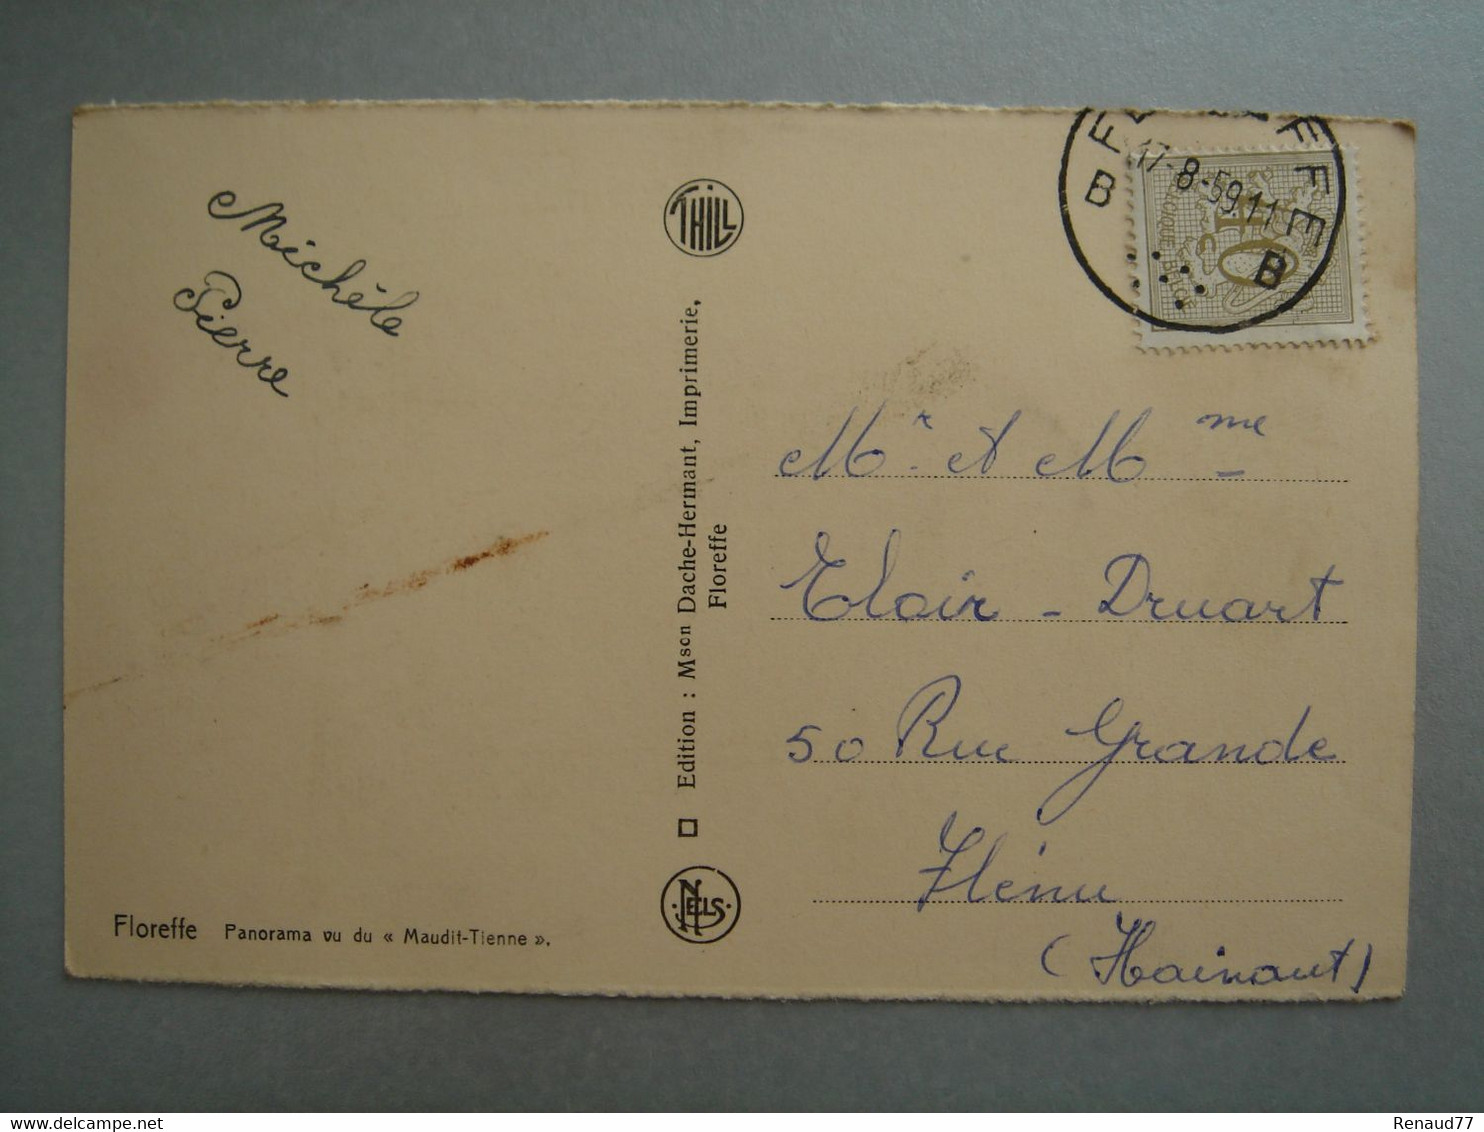 Michèle
Pierre
THILL
Edition : Mson Dache-Hermant, Imprimerie,
Floreffe
NELS
Floreffe Panorama vu du « Maudit-Tienne ».
B B
17-8-59.11
BELGIQUE BELGIE
40c
Mr et Mme
Cloir - Druart
50 Rue Grande
Flénu
(Hainaut)
Renaud77